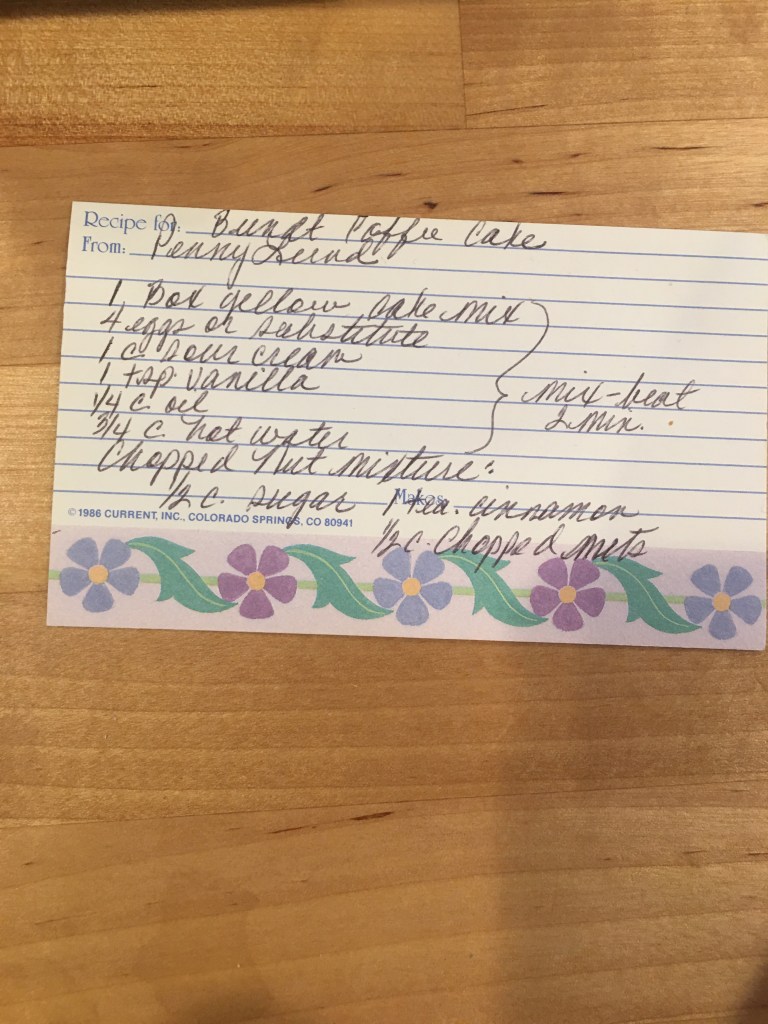 Recipe for: Bundt Coffee Cake
From: Penny Lund
1 Box yellow cake mix
4 eggs or substitute
1 c. sour cream
1 tsp. vanilla
1/4 c. oil
3/4 c. hot water
mix-beat
2 min.
Chopped Nut mixture:
1/2 c. sugar 1 tea. cinnamon
Makes:
1/2 c. Chopped nuts
©1986 CURRENT, INC., COLORADO SPRINGS, CO 80941